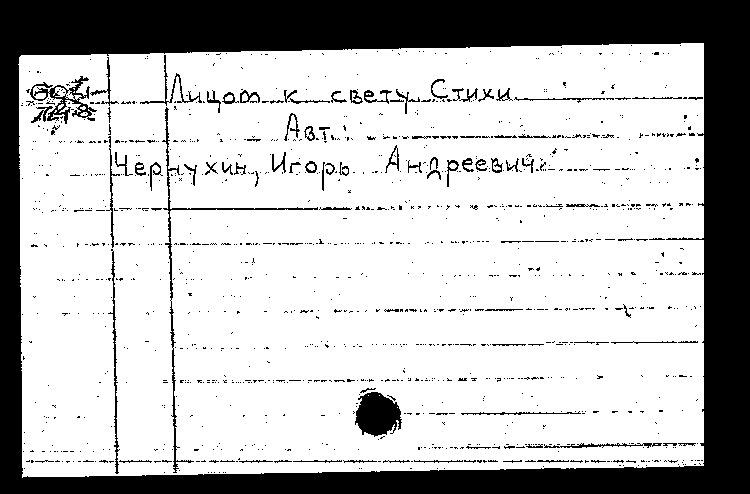 Лицом к свету. Стихи.
Авт.:
Чернухин, Игорь Андреевич.